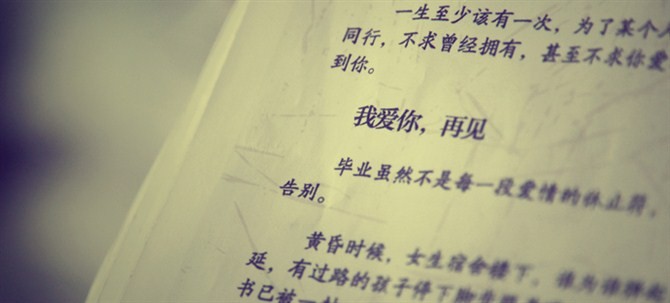 一生至少该有一次，为了某个人
同行，不求曾经拥有，甚至不求你爱
到你。
我爱你，再见
毕业虽然不是每一段爱情的休止符，
告别。
黄昏时候，女生宿舍楼下，谁为谁
延，有过路的孩子停下脚步
书已被一